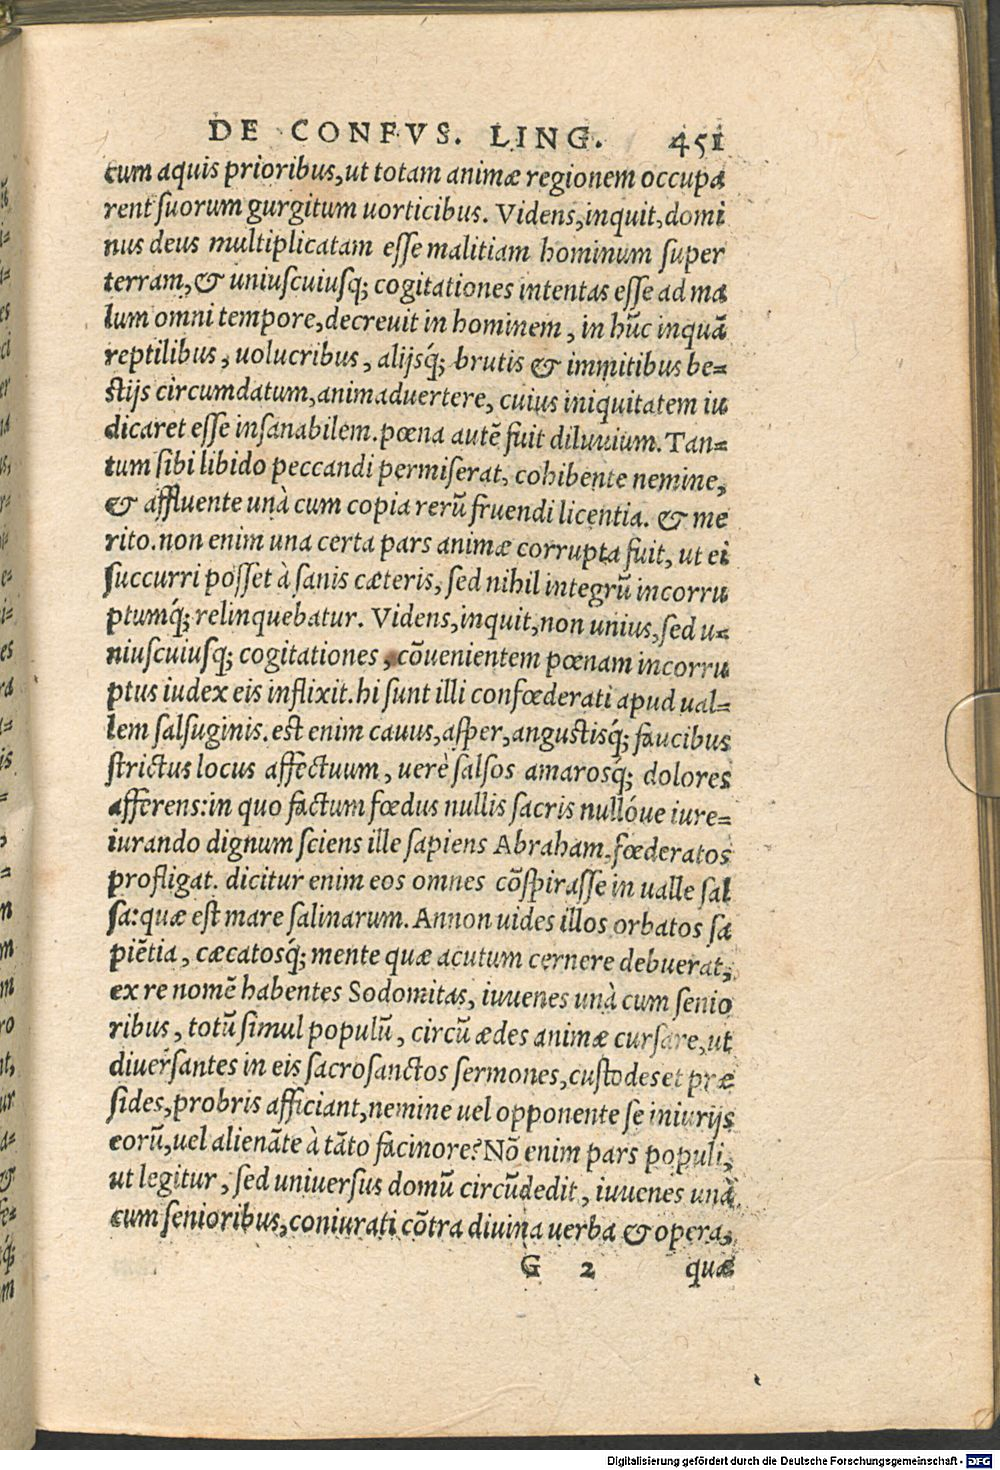 DE CONFVS. LING. 451
cum aquis prioribus, ut totam animæ regionem occupa
rent suorum gurgitum uorticibus. Videns, inquit, domi
nus deus multiplicatam esse malitiam hominum super
terram, & uniuscuiusq; cogitationes intentas esse ad ma
lum omni tempore, decreuit in hominem, in hūc inquā
reptilibus, uolucribus, alijsq́; brutis & immitibus be=
stijs circumdatum, animaduertere, cuius iniquitatem iu
dicaret esse insanabilem. pœna autē fuit diluuium. Tan=
tum sibi libido peccandi permiserat, cohibente nemine,
& affluente unà cum copia rerū fruendi licentia. & me
rito. non enim una certa pars animæ corrupta fuit, ut ei
succurri posset à sanis cæteris, sed nihil integrū incorru
ptumq́; relinquebatur. Videns, inquit, non unius, sed u=
niuscuiusq; cogitationes, cōuenientem pœnam incorru
ptus iudex eis inflixit. hi sunt illi confœderati apud ual=
lem salsuginis. est enim cauus, asper, angustisq́; faucibus
strictus locus affectuum, uerè salsos amarosq́; dolores
afferens: in quo factum fœdus nullis sacris nullóue iure=
iurando dignum sciens ille sapiens Abraham, fœderatos
profligat. dicitur enim eos omnes cōspirasse in ualle sal
sa: quæ est mare salinarum. Annon uides illos orbatos sa
piētia, cæcatosq́; mente quæ acutum cernere debuerat,
ex re nomē habentes Sodomitas, iuuenes unà cum senio
ribus, totū simul populū, circū ædes animæ cursare, ut
diuersantes in eis sacrosanctos sermones, custodes et præ
sides, probris afficiant, nemine uel opponente se iniurijs
eorū, uel alienāte à tāto facinore? Nō enim pars populi,
ut legitur, sed uniuersus domū circūdedit, iuuenes unà
cum senioribus, coniurati cōtra diuina uerba & opera,
G 2 quæ
Digitalisierung gefördert durch die Deutsche Forschungsgemeinschaft - DFG